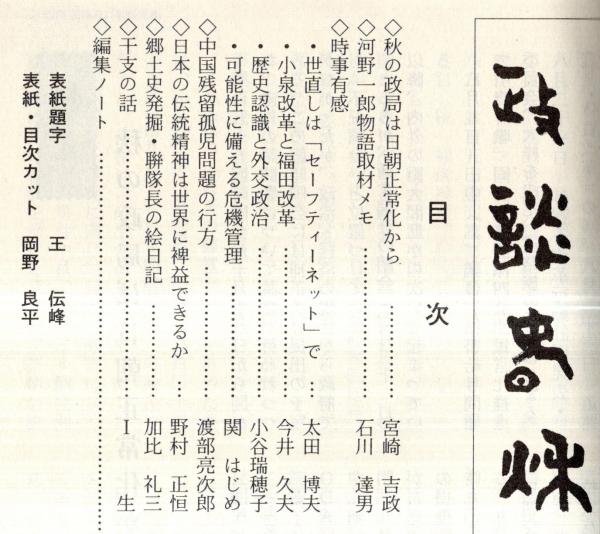 政談春の秋
目次
◇秋の政局は日朝正常化から………宮崎 吉政
◇河野一郎物語取材メモ………石川 達男
◇時事有感
・世直しは「セーフティーネット」で 太田 博夫
・小泉改革と福田改革………今井 久夫
・歴史認識と外交政治………小谷瑞穂子
・可能性に備える危機管理………関 はじめ
◇中国残留孤児問題の行方………渡部亮次郎
◇日本の伝統精神は世界に裨益できるか 野村 正恒
◇郷土史発掘・聯隊長の絵日記………加比 礼三
◇干支の話………I 生
◇編集ノート………
表紙題字 王 伝峰
表紙・目次カット 岡野 良平